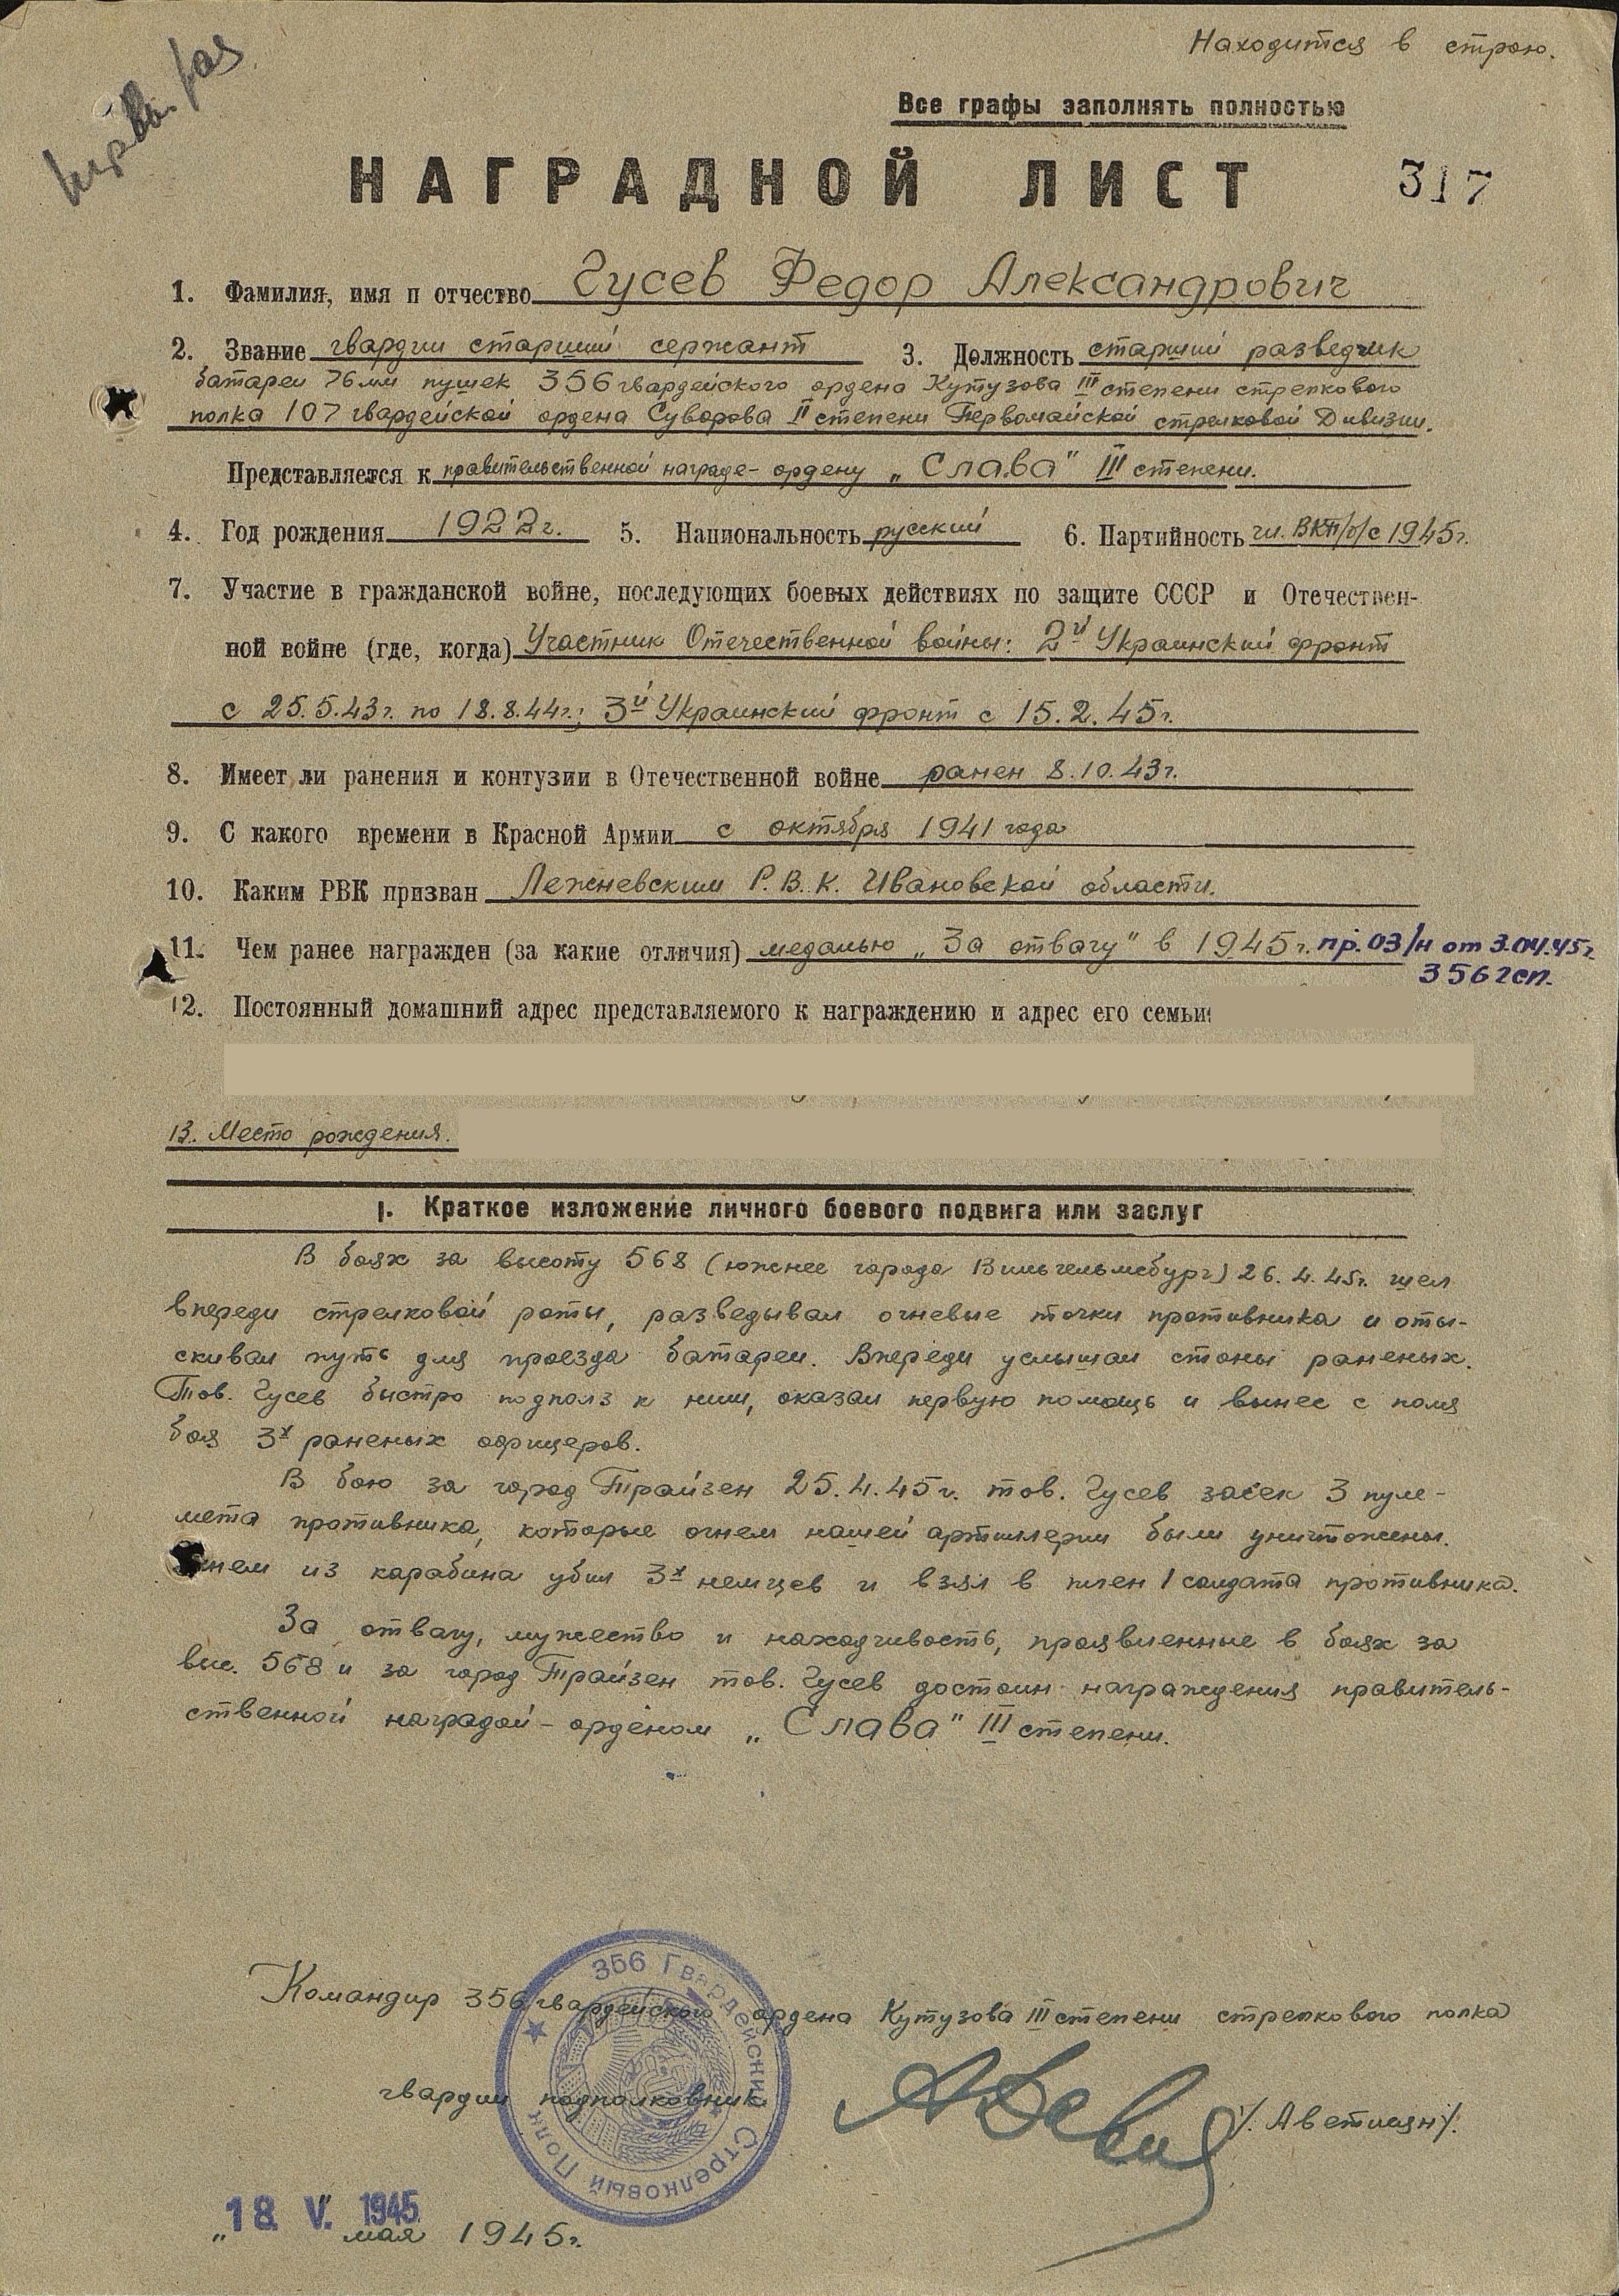 Находится в строю.
Все графы заполнять полностью
НАГРАДНОЙ ЛИСТ 317
1. Фамилия, имя и отчество Гусев Федор Александрович
2. Звание гвардии старший сержант 3. Должность старший разведчик
батареи 76мм пушек 356 гвардейского ордена Кутузова III степени стрелкового
полка 107 гвардейской ордена Суворова II степени Первомайской стрелковой Дивизии.
Представляется к правительственной награде - ордену „Слава" III степени.
4. Год рождения 1922г. 5. Национальность русский 6. Партийность чл. ВКП/б/ с 1945г.
7. Участие в гражданской войне, последующих боевых действиях по защите СССР и Отечествен-
ной войне (где, когда) Участник Отечественной войны: 2й Украинский фронт
с 25.5.43г. по 18.8.44г.; 3й Украинский фронт с 15.2.45г.
8. Имеет ли ранения и контузии в Отечественной войне ранен 8.10.43г.
9. С какого времени в Красной Армии с октября 1941 года
10. Каким РВК призван Лежневским Р.В.К. Ивановской области.
11. Чем ранее награжден (за какие отличия) медалью „За отвагу" в 1945г. пр. 03/н от 3.04.45г.
356 гсп.
12. Постоянный домашний адрес представляемого к награждению и адрес его семьи:
13. Место рождения.
I. Краткое изложение личного боевого подвига или заслуг
В боях за высоту 568 (южнее города Вильгельмсбург) 26.4.45г. шел
впереди стрелковой роты, разведывал огневые точки противника и оты-
скивал путь для проезда батареи. Впереди услышал стоны раненых.
Тов. Гусев быстро подполз к ним, оказал первую помощь и вынес с поля
боя 3х раненых офицеров.
В бою за город Трайзен 25.4.45г. тов. Гусев засек 3 пуле-
мета противника, которые огнем нашей артиллерии были уничтожены.
Огнем из карабина убил 3х немцев и взял в плен 1 солдата противника.
За отвагу, мужество и находчивость, проявленные в боях за
выс. 568 и за город Трайзен тов. Гусев достоин награждения правитель-
ственной наградой - орденом „Слава" III степени.
Командир 356 гвардейского ордена Кутузова III степени стрелкового полка
гвардии подполковник /Аветисян/.
356 Гвардейский Стрелковый Полк
18 V. 1945
„ " мая 1945г.